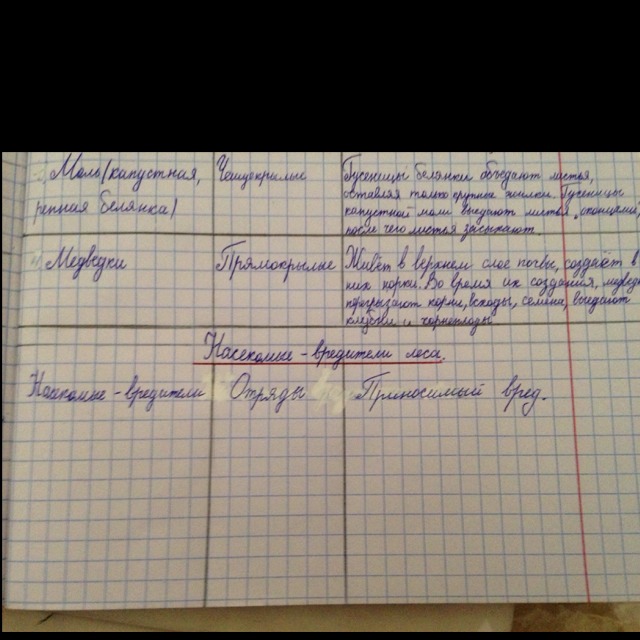 Моль (капустная,
репная белянка)
Чешуекрылые
Гусеницы белянки объедают листья,
оставляя только крупные жилки. Гусеницы
капустной моли выедают листья „окошками“,
после чего листья засыхают.
Медведки
Прямокрылые
Живёт в верхнем слое почвы, создаёт в
них норки. Во время их создания, медведк
перегрызают корни, всходы, семена, выедают
клубни и корнеплоды
Насекомые - вредители леса.
Насекомые - вредители
Отряды
Приносимый вред.